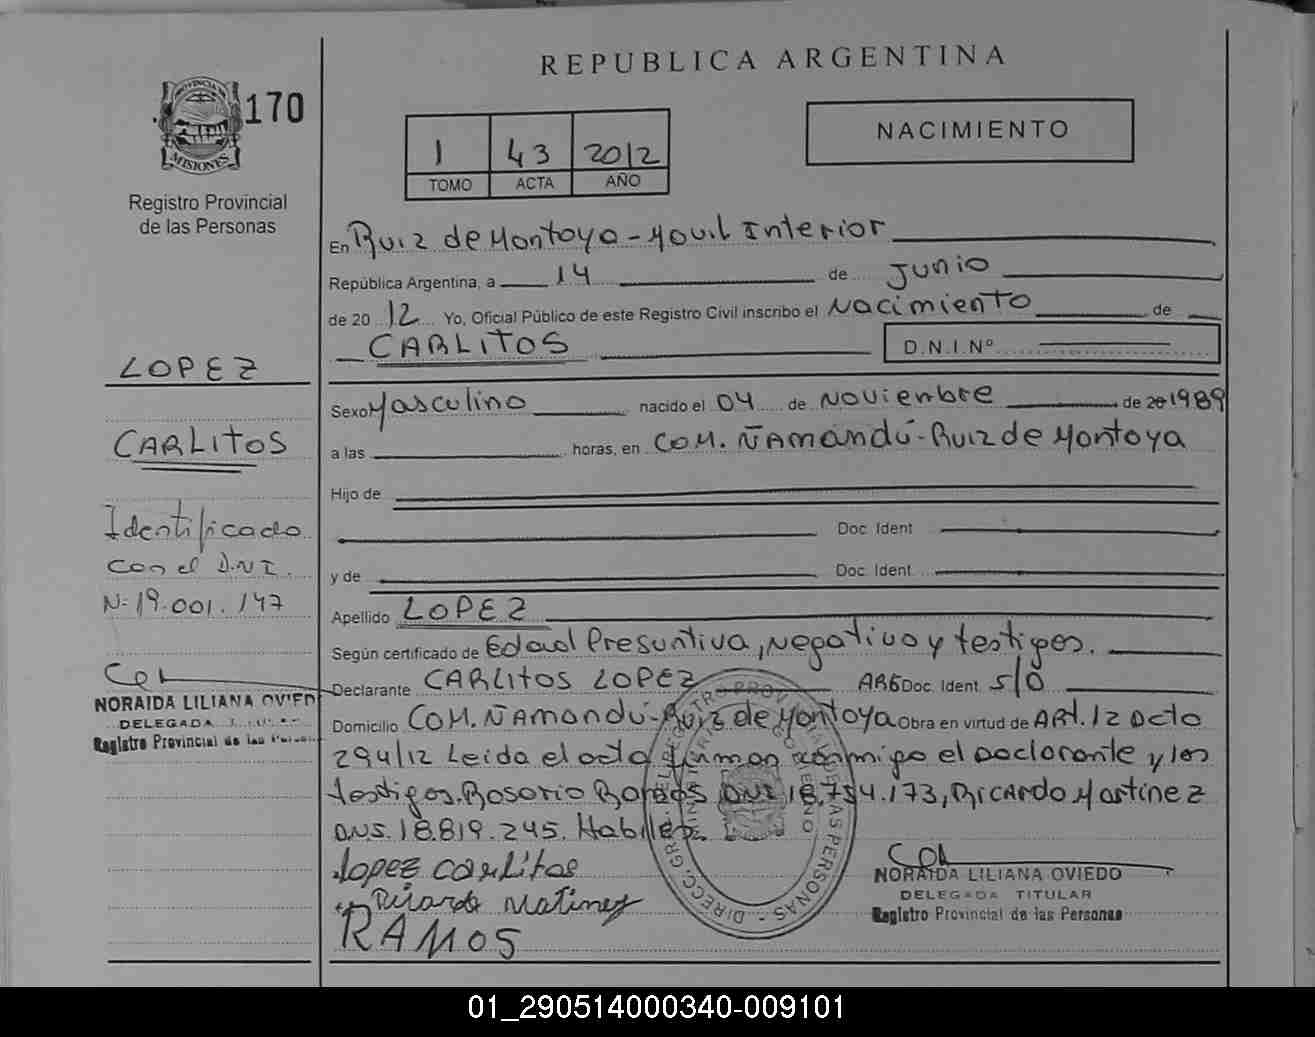 REPUBLICA ARGENTINA
PROVINCIA DE
MISIONES
170
Registro Provincial
de las Personas
1 43 2012
TOMO ACTA AÑO
NACIMIENTO
En Ruiz de Montoya - Movil Interior
República Argentina, a 14 de Junio
de 20 12 Yo, Oficial Público de este Registro Civil inscribo el Nacimiento de
CARLITOS D.N.I.Nº
LOPEZ
CARLITOS
Identificado
con el D.N.I.
N- 19.001.147
NORAIDA LILIANA OVIED
DELEGADA
Registro Provincial de las
Sexo Masculino nacido el 04 de Noviembre de 20 1989
a las horas, en COM. ÑAMANDÚ - Ruiz de Montoya
Hijo de
Doc. Ident
y de Doc. Ident.
Apellido LOPEZ
Según certificado de Edad Presuntiva, Negativo y testigos.
Declarante CARLITOS LOPEZ ARG Doc. Ident. S/D
Domicilio COM. ÑAMANDÚ - Ruiz de Montoya Obra en virtud de ART. 12 Dcto
294/12 Leida el acta firman conmigo el Declarante y los
testigos. Rosario Ramos DNI 18.754.173, Ricardo Martinez
DNI. 18.819.245. Habiles.
Lopez Carlitos
Ricardo Matinez
RAMOS
NORAIDA LILIANA OVIEDO
DELEGADA TITULAR
Registro Provincial de las Personas
01_290514000340-009101